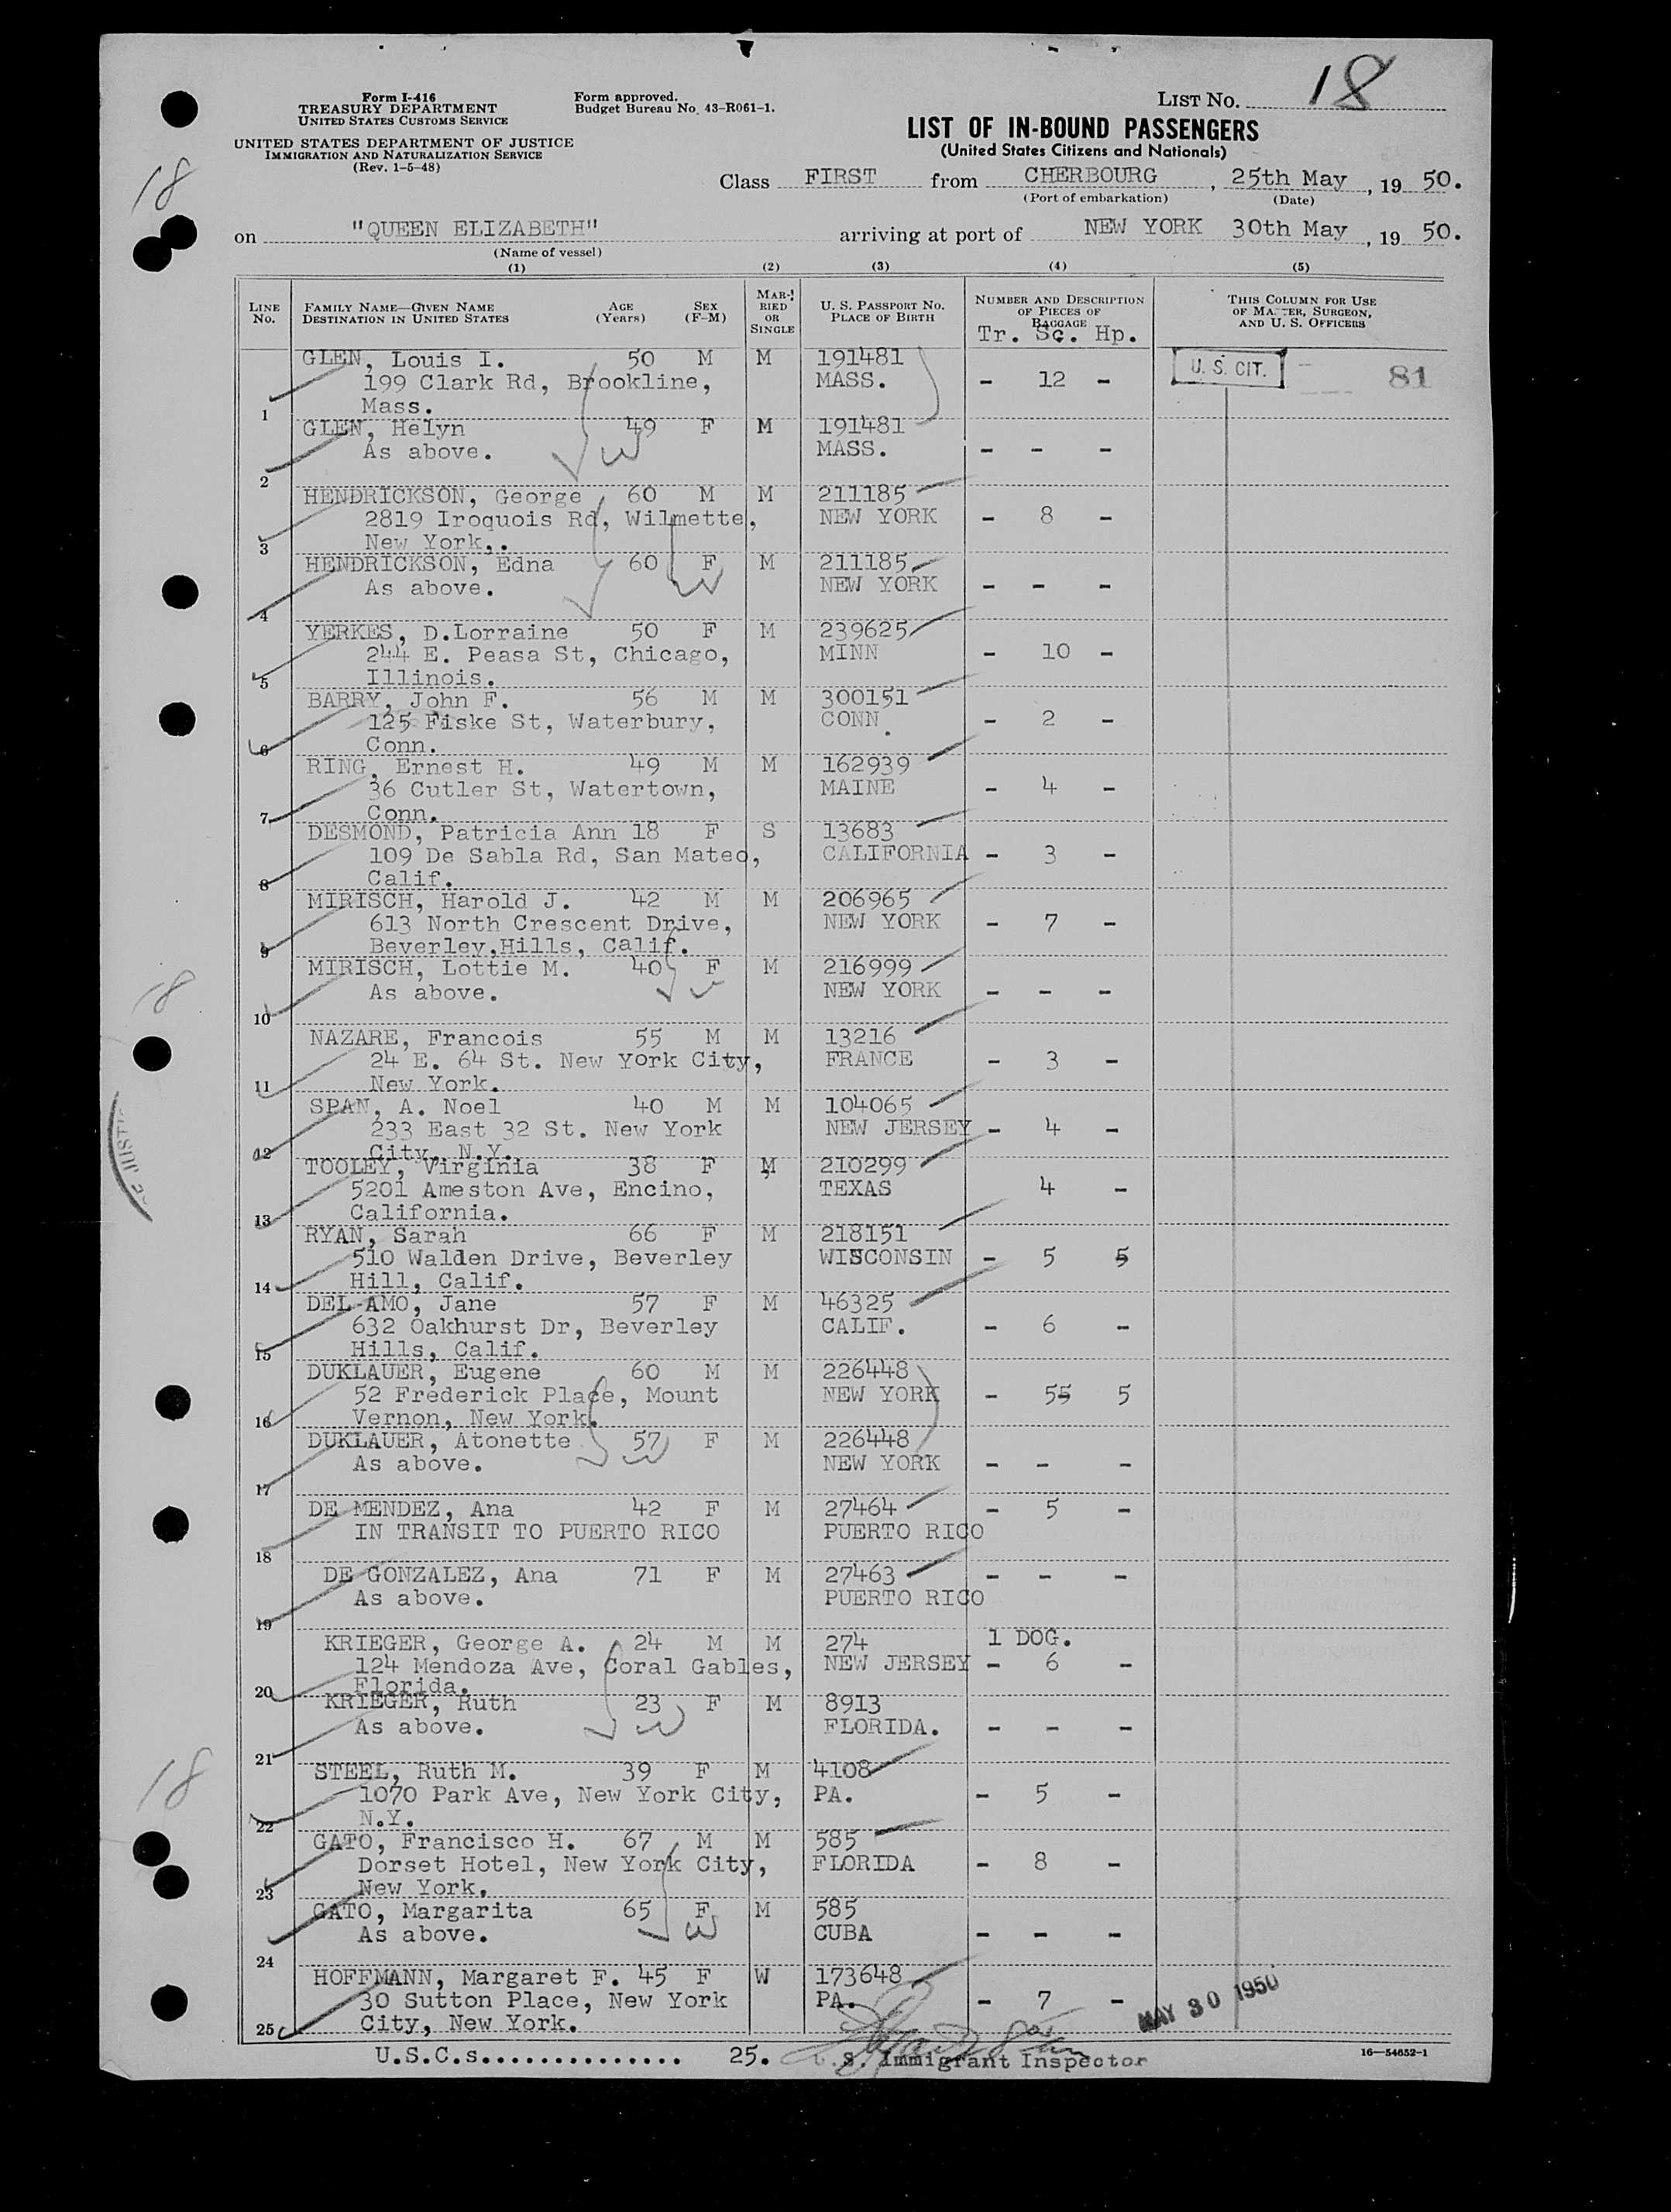 Form I-416
TREASURY DEPARTMENT
UNITED STATES CUSTOMS SERVICE
UNITED STATES DEPARTMENT OF JUSTICE
IMMIGRATION AND NATURALIZATION SERVICE
(Rev. 1-5-48)
Form approved.
Budget Bureau No. 43-R061-1.
LIST NO. 18
LIST OF IN-BOUND PASSENGERS
(United States Citizens and Nationals)
18
Class FIRST from CHERBOURG, 25th May, 19 50.
(Port of embarkation) (Date)
on "QUEEN ELIZABETH" arriving at port of NEW YORK 30th May, 19 50.
(Name of vessel)
(1) (2) (3) (4) (5)
LINE No. FAMILY NAME—GIVEN NAME DESTINATION IN UNITED STATES AGE (Years) SEX (F-M) MARRIED OR SINGLE U. S. PASSPORT NO. PLACE OF BIRTH NUMBER AND DESCRIPTION OF PIECES OF BAGGAGE THIS COLUMN FOR USE OF MASTER, SURGEON, AND U. S. OFFICERS
Tr. Sc. Hp.
GLEN, Louis I. 50 M M 191481 U. S. CIT. 81
199 Clark Rd, Brookline, MASS. - 12 -
1 Mass.
GLEN, Helyn 49 F M 191481
As above. MASS. - - -
2
HENDRICKSON, George 60 M M 211185
2819 Iroquois Rd, Wilmette, NEW YORK - 8 -
3 New York,.
HENDRICKSON, Edna 60 F M 211185
As above. NEW YORK - - -
4
YERKES, D.Lorraine 50 F M 239625
244 E. Peasa St, Chicago, MINN - 10 -
5 Illinois.
BARRY, John F. 56 M M 300151
125 Fiske St, Waterbury, CONN. - 2 -
6 Conn.
RING, Ernest H. 49 M M 162939
36 Cutler St, Watertown, MAINE - 4 -
7 Conn.
DESMOND, Patricia Ann 18 F S 13683
109 De Sabla Rd, San Mateo, CALIFORNIA - 3 -
8 Calif.
MIRISCH, Harold J. 42 M M 206965
613 North Crescent Drive, NEW YORK - 7 -
9 Beverley,Hills, Calif.
MIRISCH, Lottie M. 40 F M 216999
As above. NEW YORK - - -
10
18
NAZARE, Francois 55 M M 13216
24 E. 64 St. New York City, FRANCE - 3 -
11 New York.
SPAN, A. Noel 40 M M 104065
233 East 32 St. New York NEW JERSEY - 4 -
12 City, N.Y.
TOOLEY, Virginia 38 F M 210299
5201 Ameston Ave, Encino, TEXAS 4 -
13 California.
RYAN, Sarah 66 F M 218151
510 Walden Drive, Beverley WISCONSIN - 5 5
14 Hill, Calif.
DEL AMO, Jane 57 F M 46325
632 Oakhurst Dr, Beverley CALIF. - 6 -
15 Hills, Calif.
DUKLAUER, Eugene 60 M M 226448
52 Frederick Place, Mount NEW YORK - 55 5
16 Vernon, New York.
DUKLAUER, Atonette 57 F M 226448
As above. NEW YORK - - -
17
DE MENDEZ, Ana 42 F M 27464 - 5 -
IN TRANSIT TO PUERTO RICO PUERTO RICO
18
DE GONZALEZ, Ana 71 F M 27463 - - -
As above. PUERTO RICO
19
KRIEGER, George A. 24 M M 274 1 DOG.
124 Mendoza Ave, Coral Gables, NEW JERSEY - 6 -
20 Florida.
KRIEGER, Ruth 23 F M 8913
As above. FLORIDA. - - -
21
18
STEEL, Ruth M. 39 F M 4108
1070 Park Ave, New York City, PA. - 5 -
22 N.Y.
GATO, Francisco H. 67 M M 585
Dorset Hotel, New York City, FLORIDA - 8 -
23 New York.
GATO, Margarita 65 F M 585
As above. CUBA - - -
24
HOFFMANN, Margaret F. 45 F W 173648
30 Sutton Place, New York PA. - 7 - MAY 30 1950
25 City, New York.
U.S.C.s............... 25. U.S. Immigrant Inspector 16—54652-1